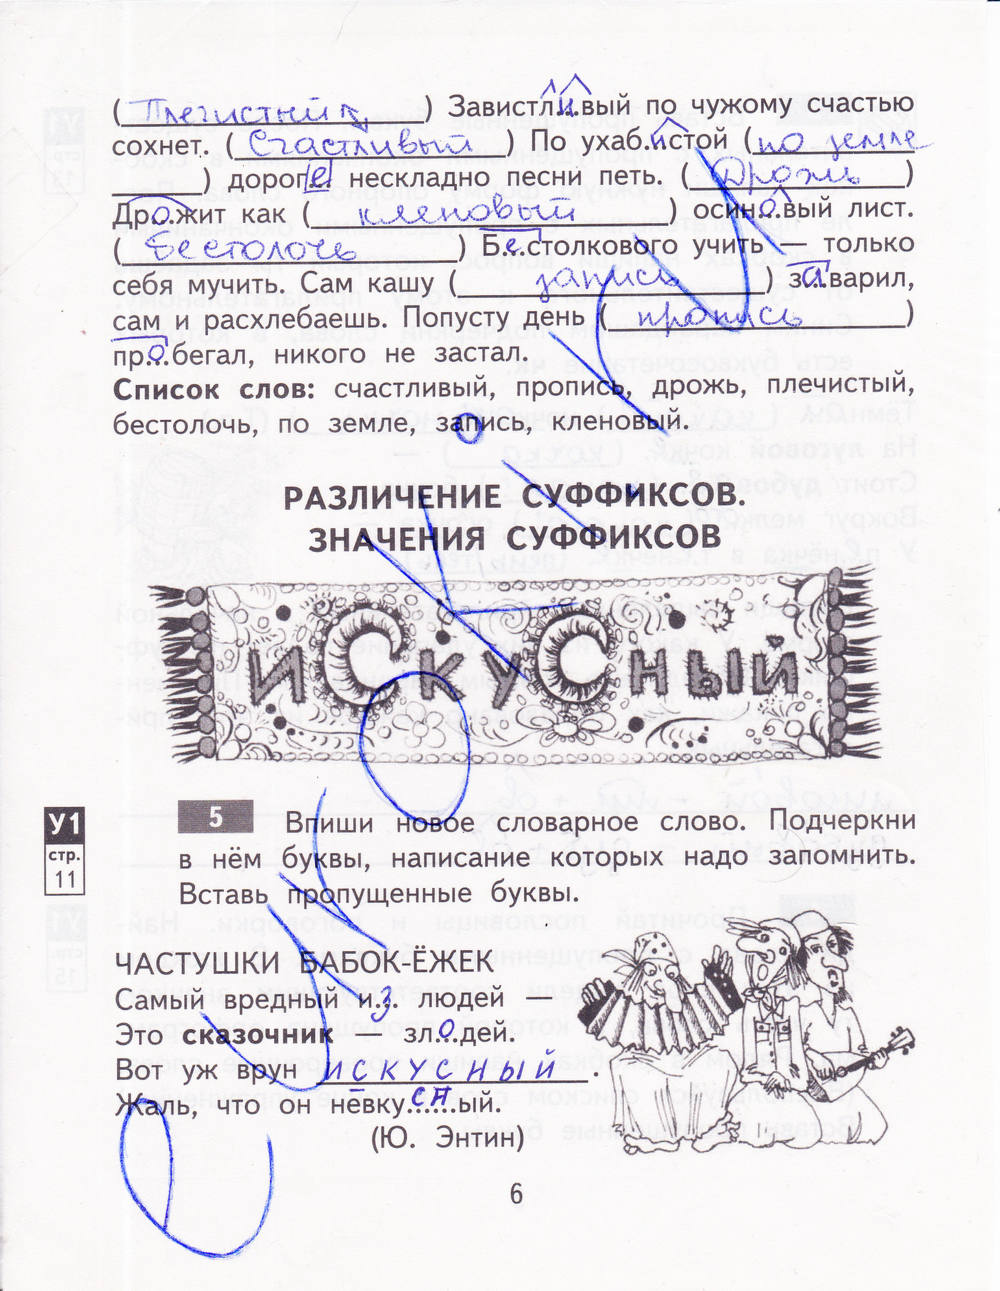 ( Плечистый ) Завистл.и.вый по чужому счастью
сохнет. ( Счастливый ) По ухаб.истой ( по земле
) дорог е нескладно песни петь. ( Дрожь )
Др.о.жит как ( кленовый ) осин.о.вый лист.
( Бестолочь ) Б.е.столкового учить — только
себя мучить. Сам кашу ( запись ) з.а.варил,
сам и расхлебаешь. Попусту день ( пропись )
пр.о.бегал, никого не застал.
Список слов: счастливый, пропись, дрожь, плечистый,
бестолочь, по земле, запись, кленовый.
РАЗЛИЧЕНИЕ СУФФИКСОВ.
ЗНАЧЕНИЯ СУФФИКСОВ
ИСКУСНЫЙ
У1
стр.
11
5 Впиши новое словарное слово. Подчеркни
в нём буквы, написание которых надо запомнить.
Вставь пропущенные буквы.
ЧАСТУШКИ БАБОК-ЁЖЕК
Самый вредный и.з. людей —
Это сказочник — зл.о.дей.
Вот уж врун искусный.
Жаль, что он невку.сн.ый.
(Ю. Энтин)
6